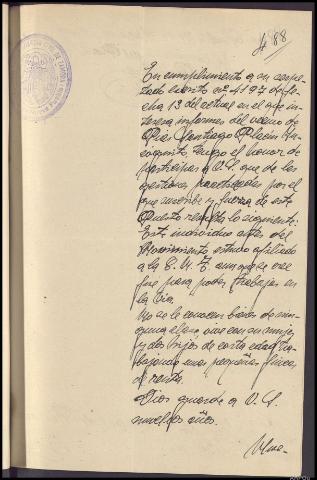 f 88
En cumplimiento a su respe-
tado escrito nº 4197 de fe-
cha 13 del actual en el que in-
teresa informes del vecino de
Santiago
tengo el honor de
participar a V.S. que de las
gestiones practicadas por el
que suscribe y fuerza de este
Puesto resulta lo siguiente:
Este individuo antes del
Movimiento estuvo afiliado
a la aunque se cree
fue para poder trabajar en
la via.
No se le conocen bienes de nin-
guna clase vive con su mujer
y dos hijos de corta edad tra-
bajando unas pequeñas fincas
de renta.
Dios guarde a V.S.
muchos años.